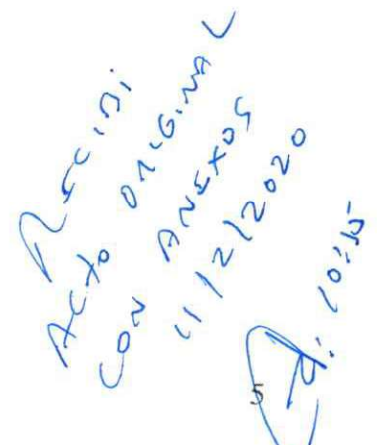 Recibi
Acto ORIGINAL
CON ANEXOS
11/2/2020
10:15
5